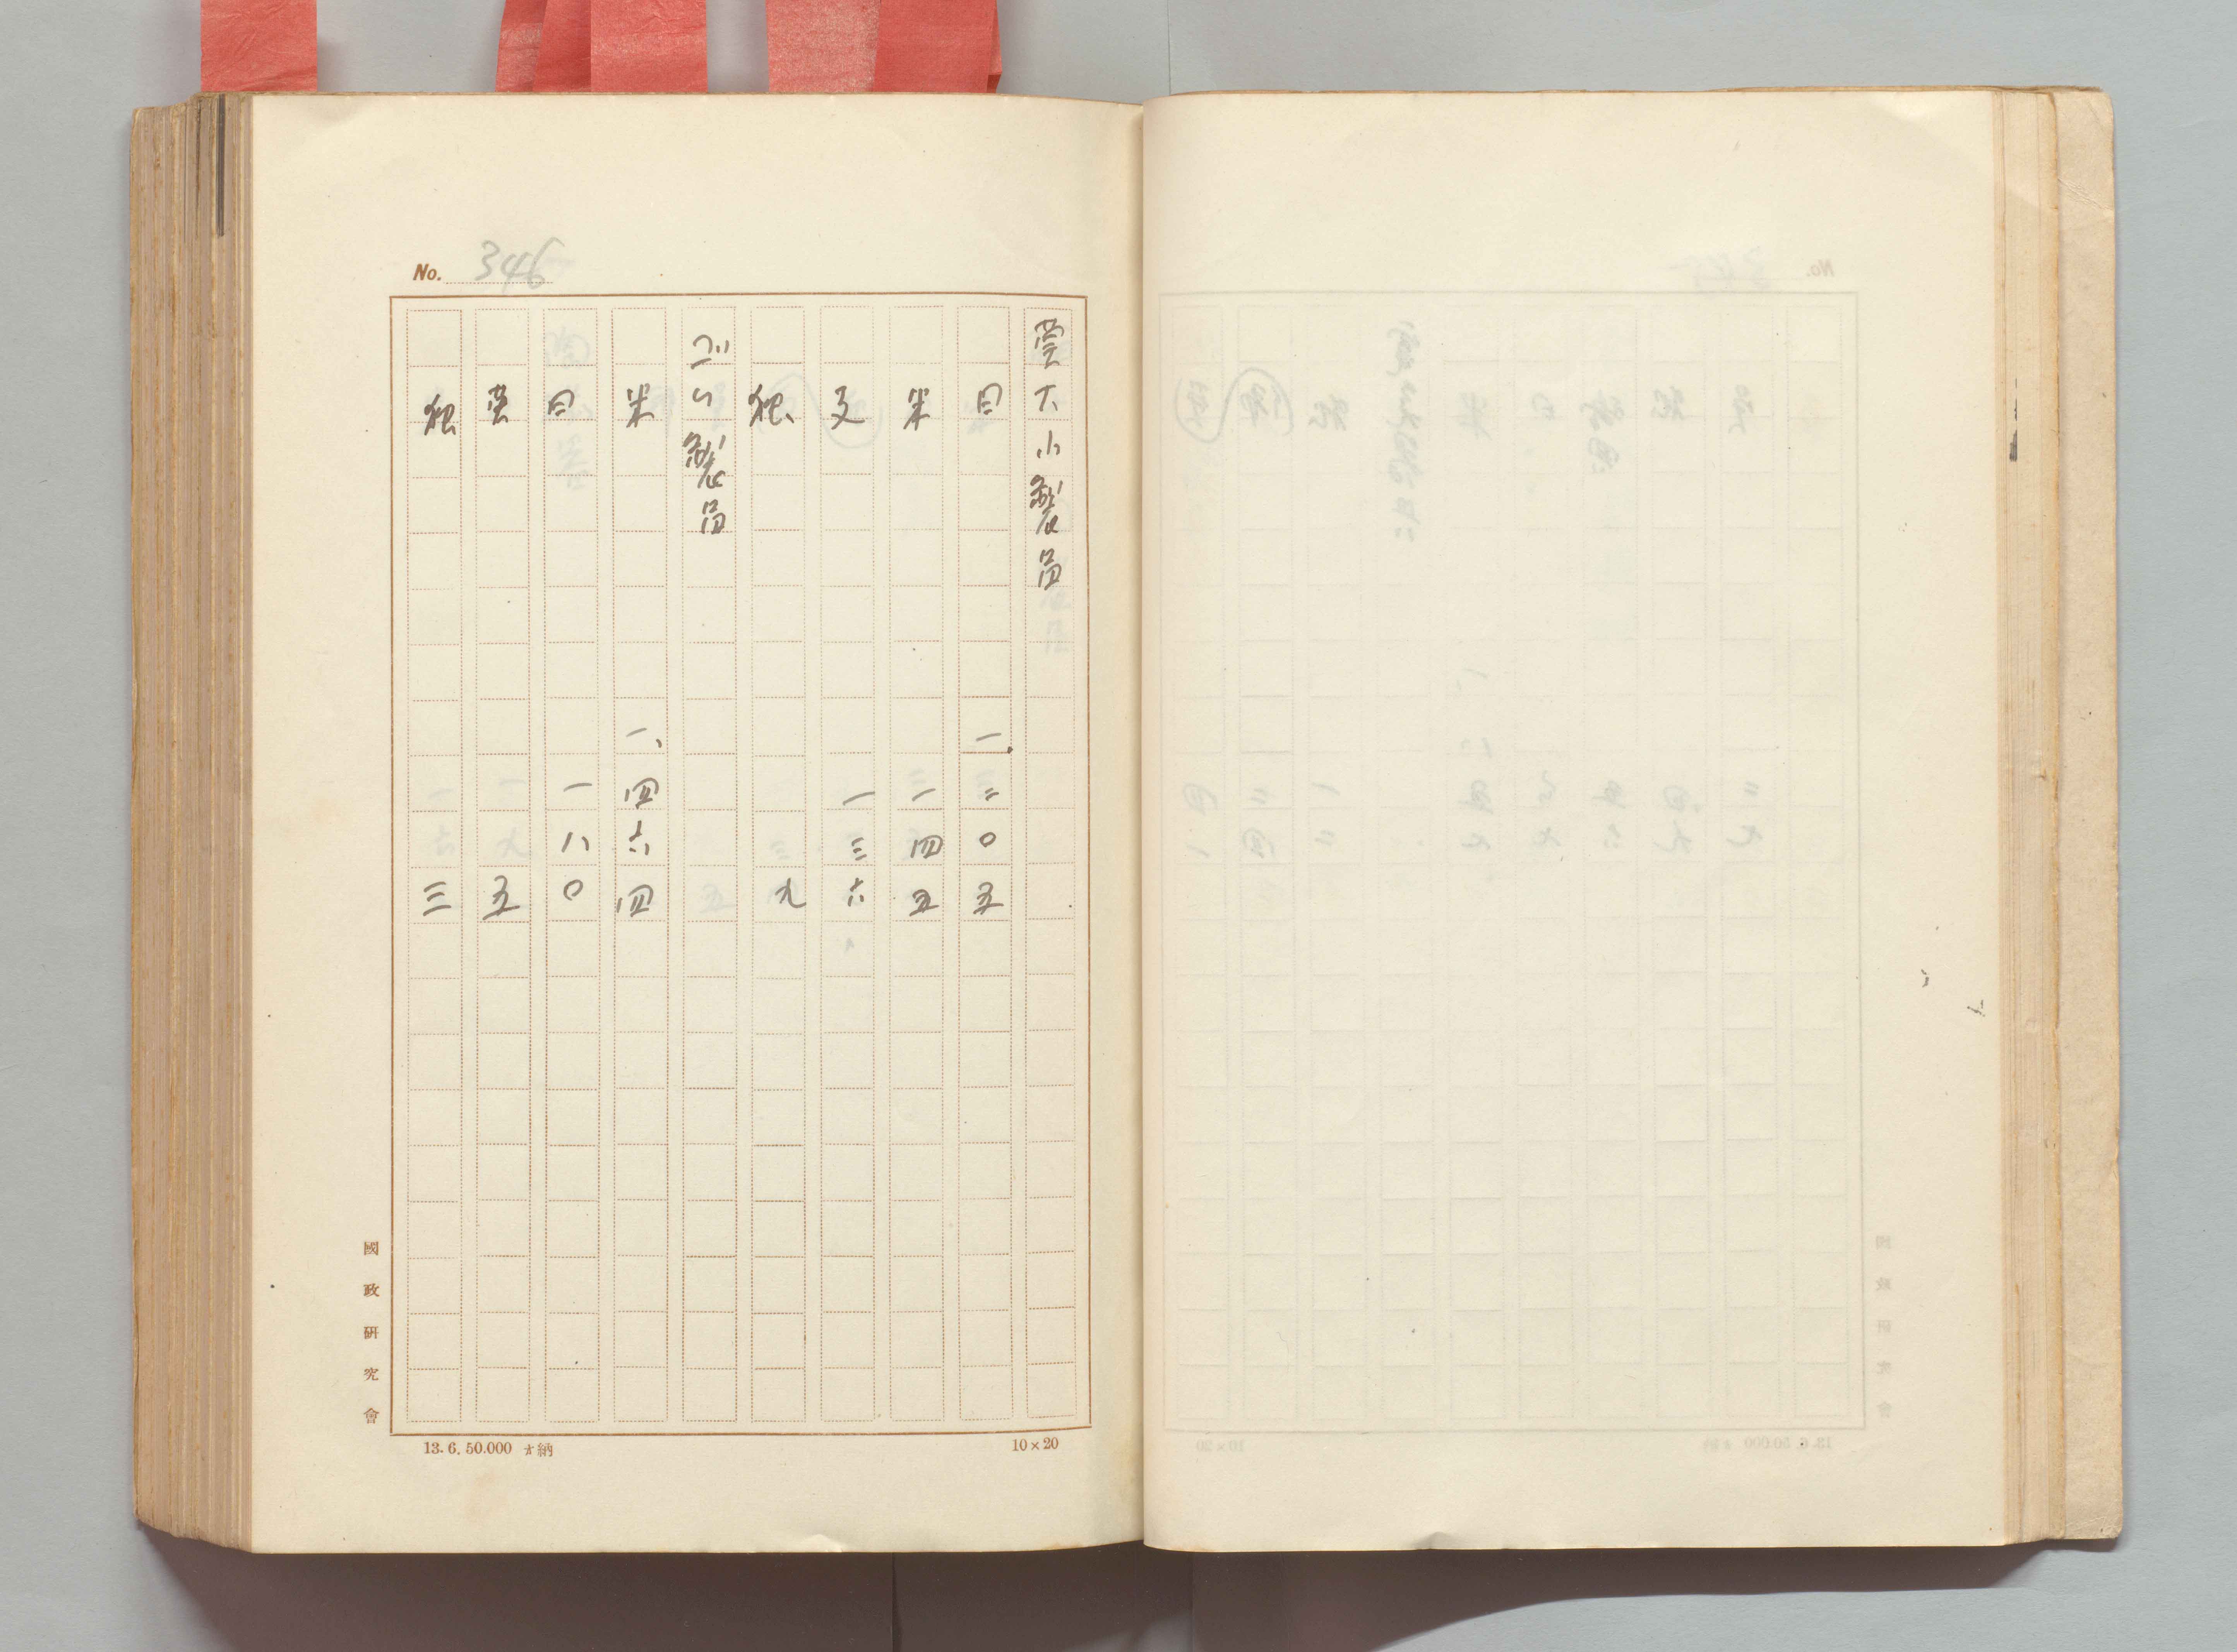 No. 346
莫大小製品
日 一、二〇五
米 二四五
支 一三六
独 九
ゴム製品
米 一、四六四
日 一八〇
英 五
独 三
國政研究會
13.6.50.000 納
10×20